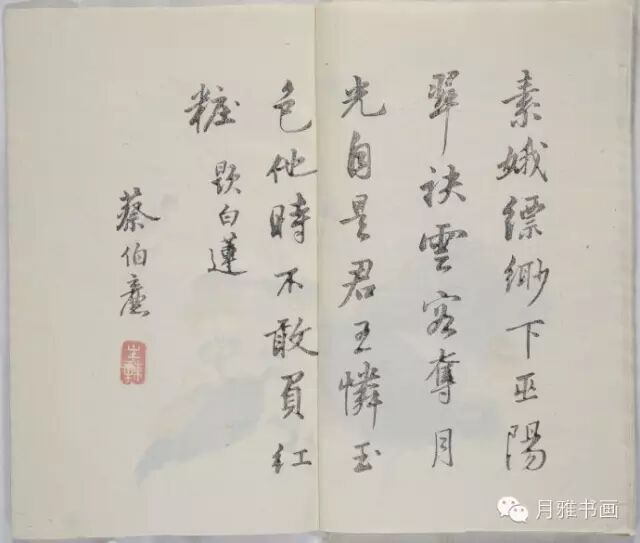 素娥縹緲下巫陽
翠袂雲容奪月
光自是君王憐玉
色他時不敢買紅
粧 題白蓮
蔡伯
月雅书画